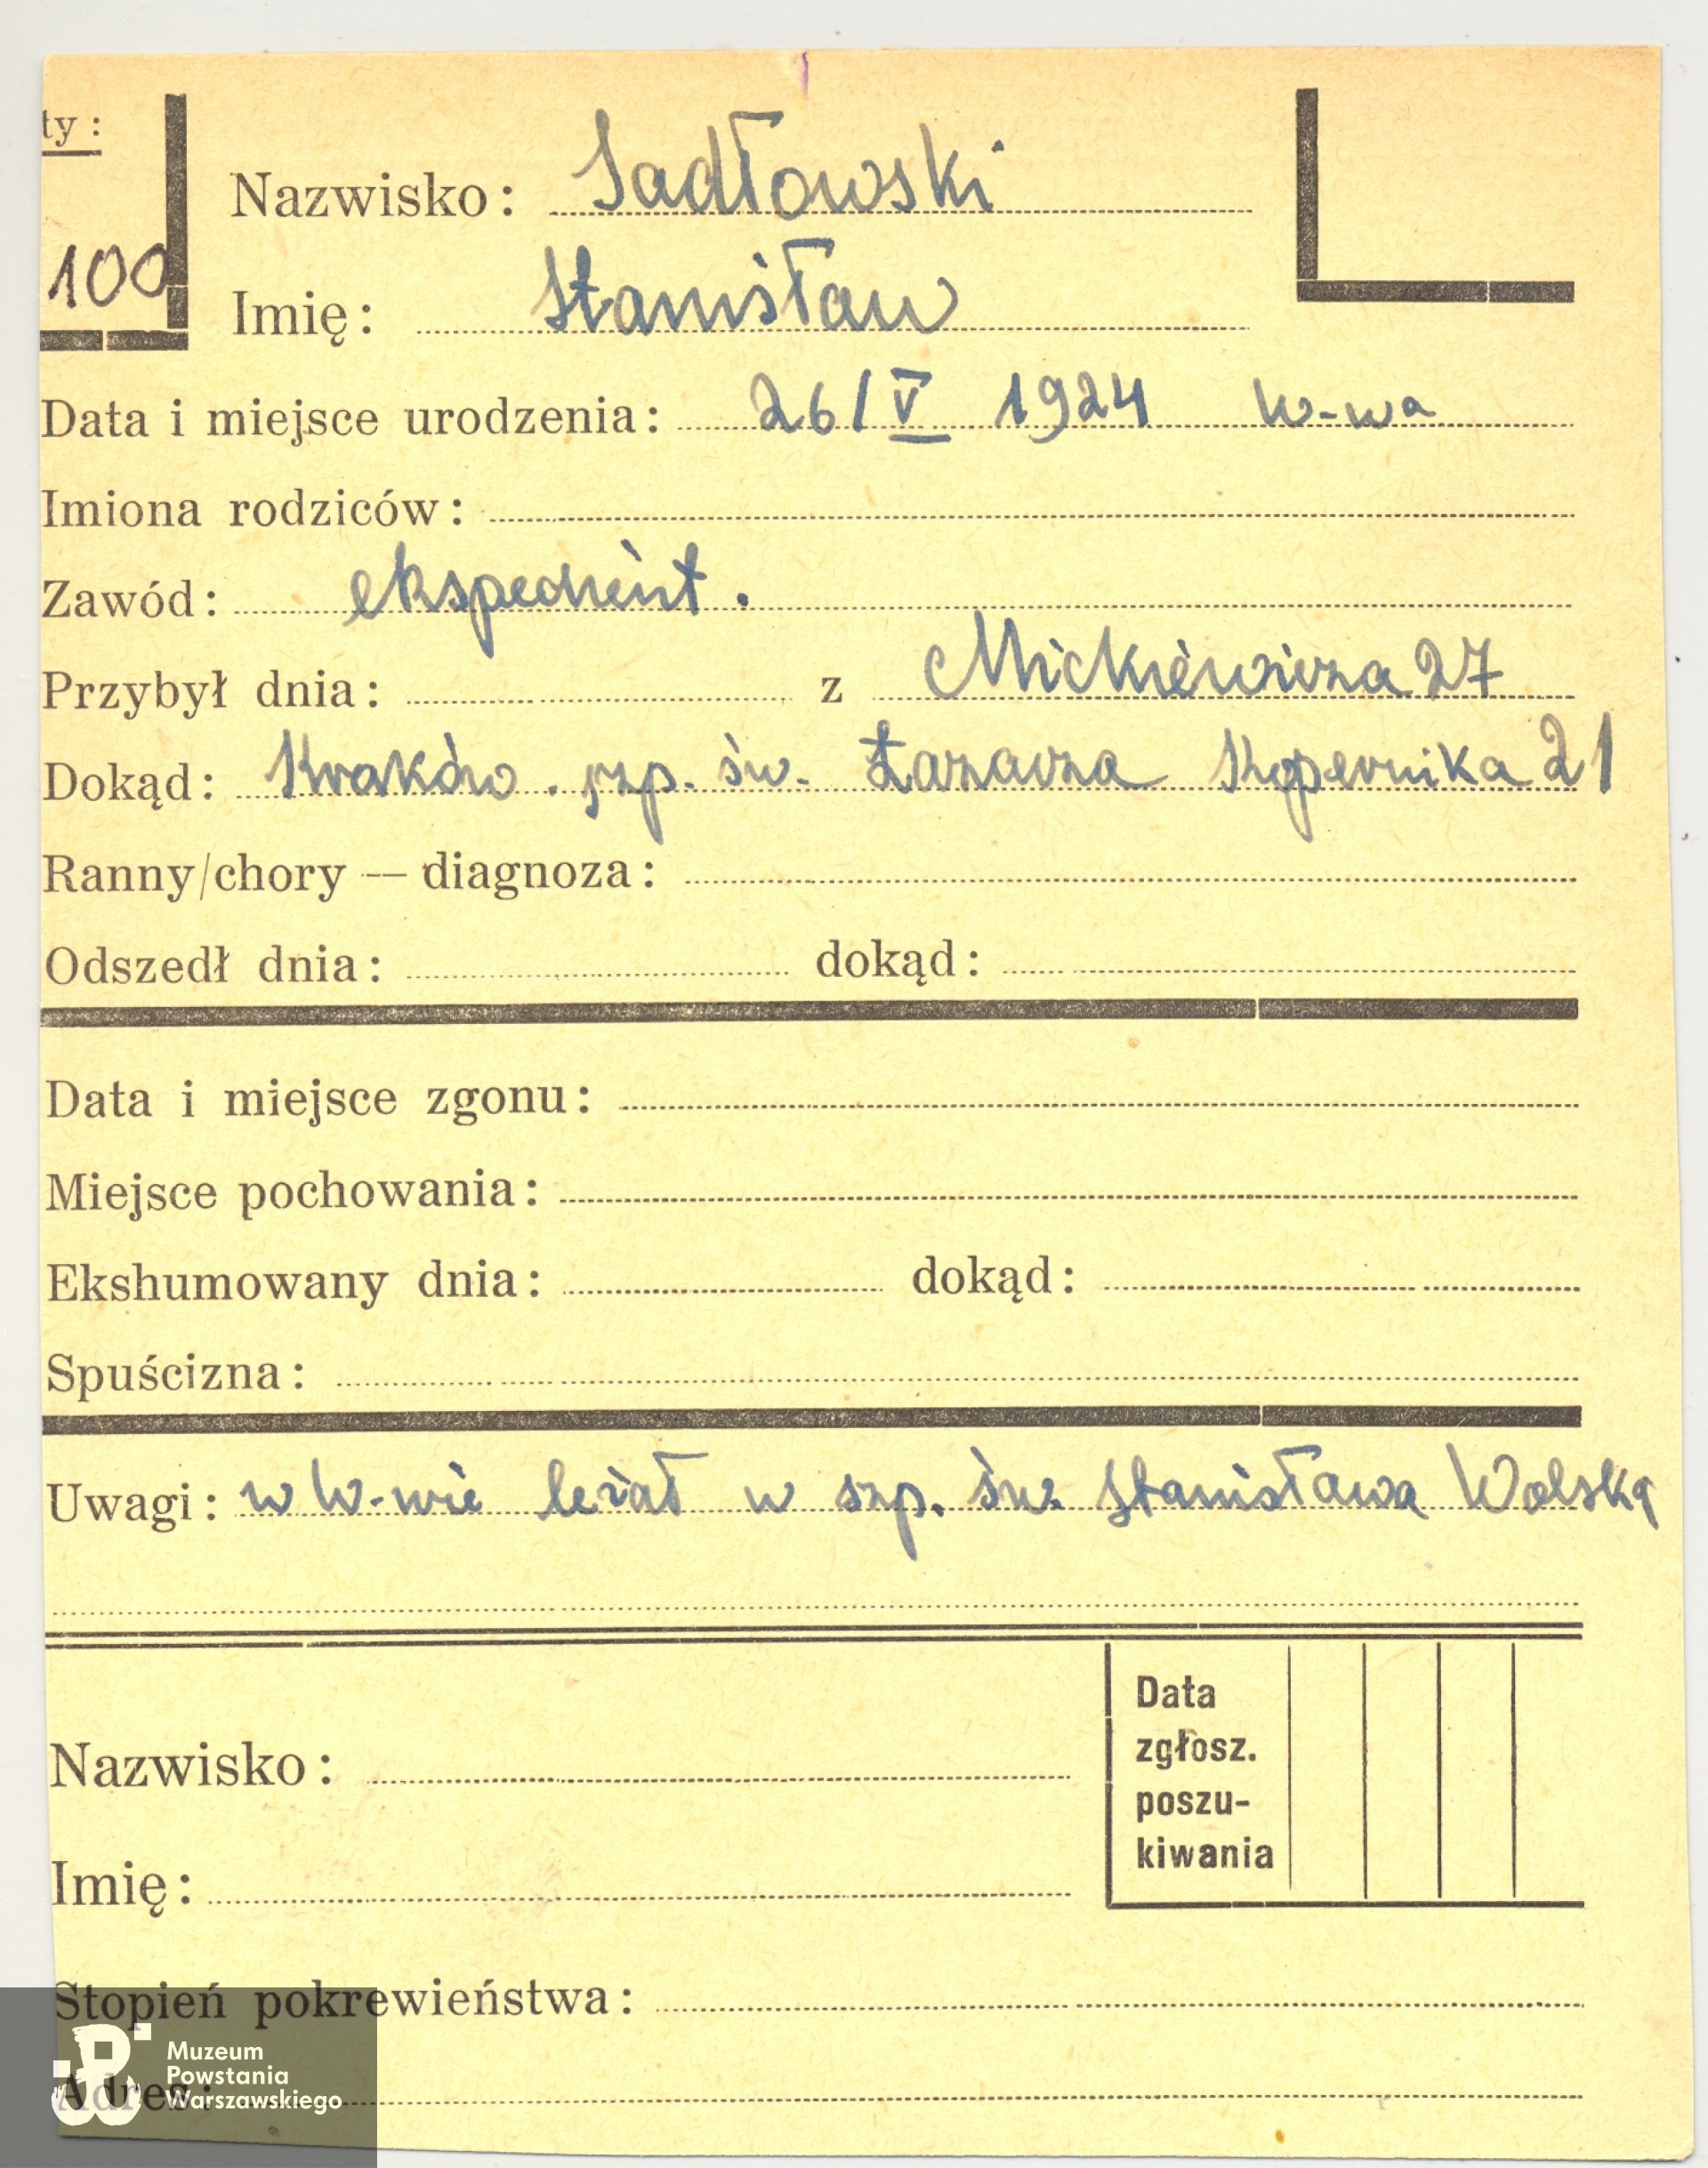 ty:
100
Nazwisko: Sadłowski
Imię: Stanisław
Data i miejsce urodzenia: 26/V 1924 W-wa
Imiona rodziców:
Zawód: ekspedient.
Przybył dnia: z Mickiewicza 27
Dokąd: Kraków. szp. św. Łazarza Kopernika 21
Ranny/chory — diagnoza:
Odszedł dnia: dokąd:
Data i miejsce zgonu:
Miejsce pochowania:
Ekshumowany dnia: dokąd:
Spuścizna:
Uwagi: w W-wie leżał w szp. św. Stanisława Wolska
Data
zgłosz.
poszu-
kiwania
Nazwisko:
Imię:
Stopień pokrewieństwa:
Adres:
Muzeum
Powstania
Warszawskiego